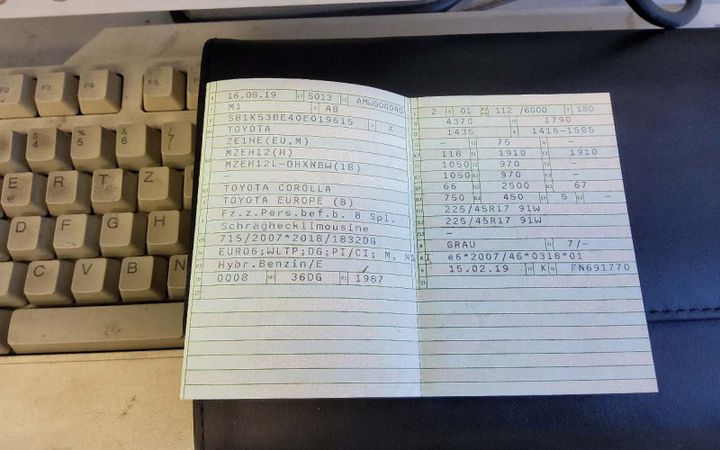 16.08.19 5013 AMW000040
M1 AB
SB1K53BE40E019615 X
TOYOTA
ZE1HE(EU,M)
MZEH12(H)
MZEH12L-DHXNBW(1B)
-
TOYOTA COROLLA
TOYOTA EUROPE (B)
Fz.z.Pers.bef.b. 8 Spl.
Schräghecklimousine
715/2007*2018/1832DG
EURO6;WLPT;DG;PI/CI; M, N1 I
Hybr.Benzin/E
0008 36DG 1987
2 01 112 /6000 180
4370 1790
1435 1415-1585
- 75 -
118 1910 1910
1050 970 -
1050 970 -
66 2500 67
750 450 5 -
225/45R17 91W
225/45R17 91W
-
GRAU 7/-
e6*2007/46*0318*01
15.02.19 K FN691770
F1 F2 F3 F4 F5
$ 4
% 5
& 6
/
E R T Z
D F G H
C V B